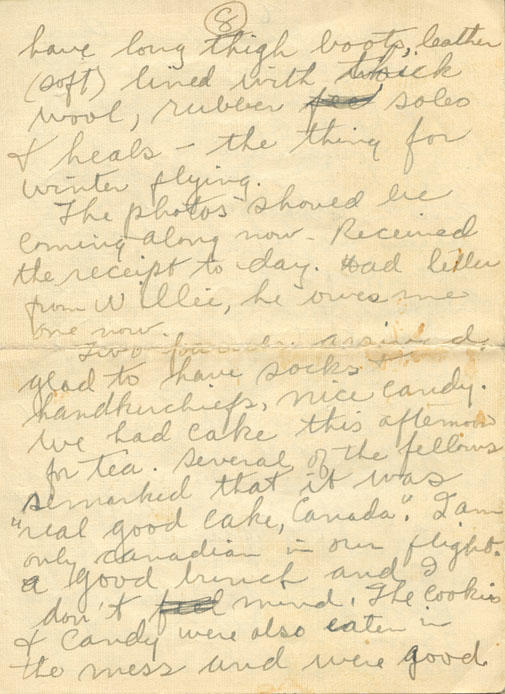 8
have long thigh boots, leather
(soft) lined with thick
wool, rubber feel soles
& heals - the thing for
winter flying.
The photos shoved be
coming along now - Received
the receipt to day. Had letter
from Willie, he owes me
one now.
Two arrived.
glad to have socks &
handkerchiefs, nice candy.
We had cake this afternoon
for tea. Several of the fellows
remarked that it was
"real good cake, Canada". I am
only canadian in our flight.
a good bunch and I
don't feel mind. The cookies
& Candy were also eaten in
the mess and were good